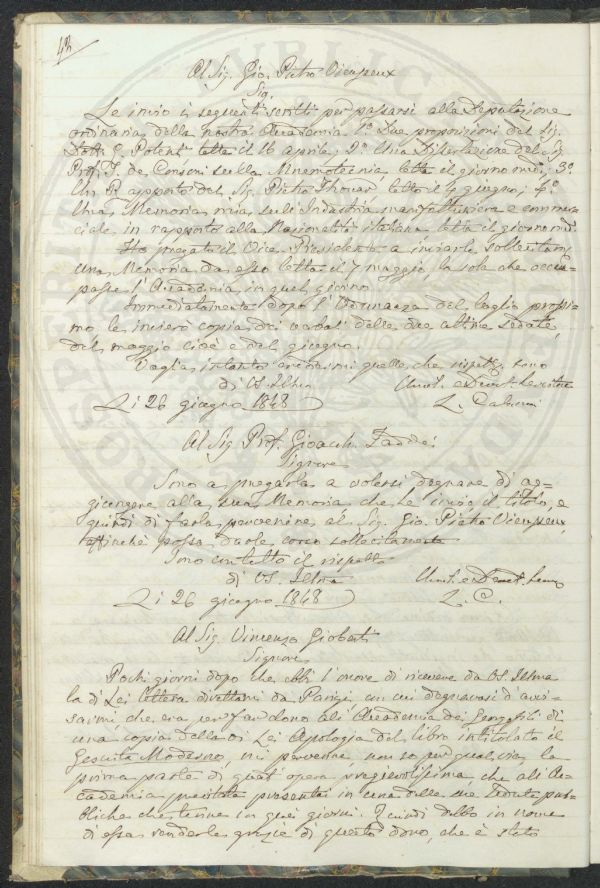 48
Al Sig. Gio. Pietro Vieusseux
Sig.
Le invio i seguenti scritti per passarsi alla Deputazione
ordinaria della nostra Accademia 1° Due proposizioni del Sig.
Dott. letta il 16 aprile, 2° Una Dissertazione del Sig.
Prof. F. de sulla Mnemotecnia letta il giorno 3°
Un Rapporto del Sig. Pietro Thouar letto il 4 giugno; 4°
Una Memoria mia sull'Industria manifatturiera e commer-
ciale, in rapporto alla Nazionalità italiana letta il giorno
Ho pregato il Vice-Presidente a inviarle
una Memoria da esso letta il 7 maggio, la sola che occu-
passe l'Accademia in quel giorno
Immediatamente dopo l'Adunanza del luglio prossi-
mo le invierò copia dei verbali delle due ultime Sedute,
del maggio cioè e del giugno.
Voglia intanto credermi quello, che rispetto sono
di VS. Illma
Li 26 giugno 1848
L.
Al Sig. Prof. Gioacch. Taddei
Signore
Sono a pregarla a volersi degnare di ag-
giungere alla sua Memoria, che Le invio, il titolo, e
quindi di farla pervenire al Sig. Gio. Pietro Vieusseux,
affinché possa darle corso sollecitamente
Sono con tutto il rispetto
di VS. Illma
Li 26 giugno 1848
L. C.
Al Sig. Vincenzo Gioberti
Signore
Pochi giorni dopo che ebbi l'onore di ricevere da VS. Illma
la di Lei lettera direttami da Parigi, in cui degnavasi d'avvi-
sarmi che era per far dono all'Accademia dei Georgofili di
una copia della di Lei Apologia del libro intitolato il
Gesuita Moderno, mi pervenne, non so per qual via, la
prima parte di quest'opera pregievolissima, che all'Ac-
cademia prelodata presentai in una delle sue Sedute pub-
bliche che tenne in quei giorni. Quindi debbo in nome
di essa renderle grazie di questo dono, che è stato